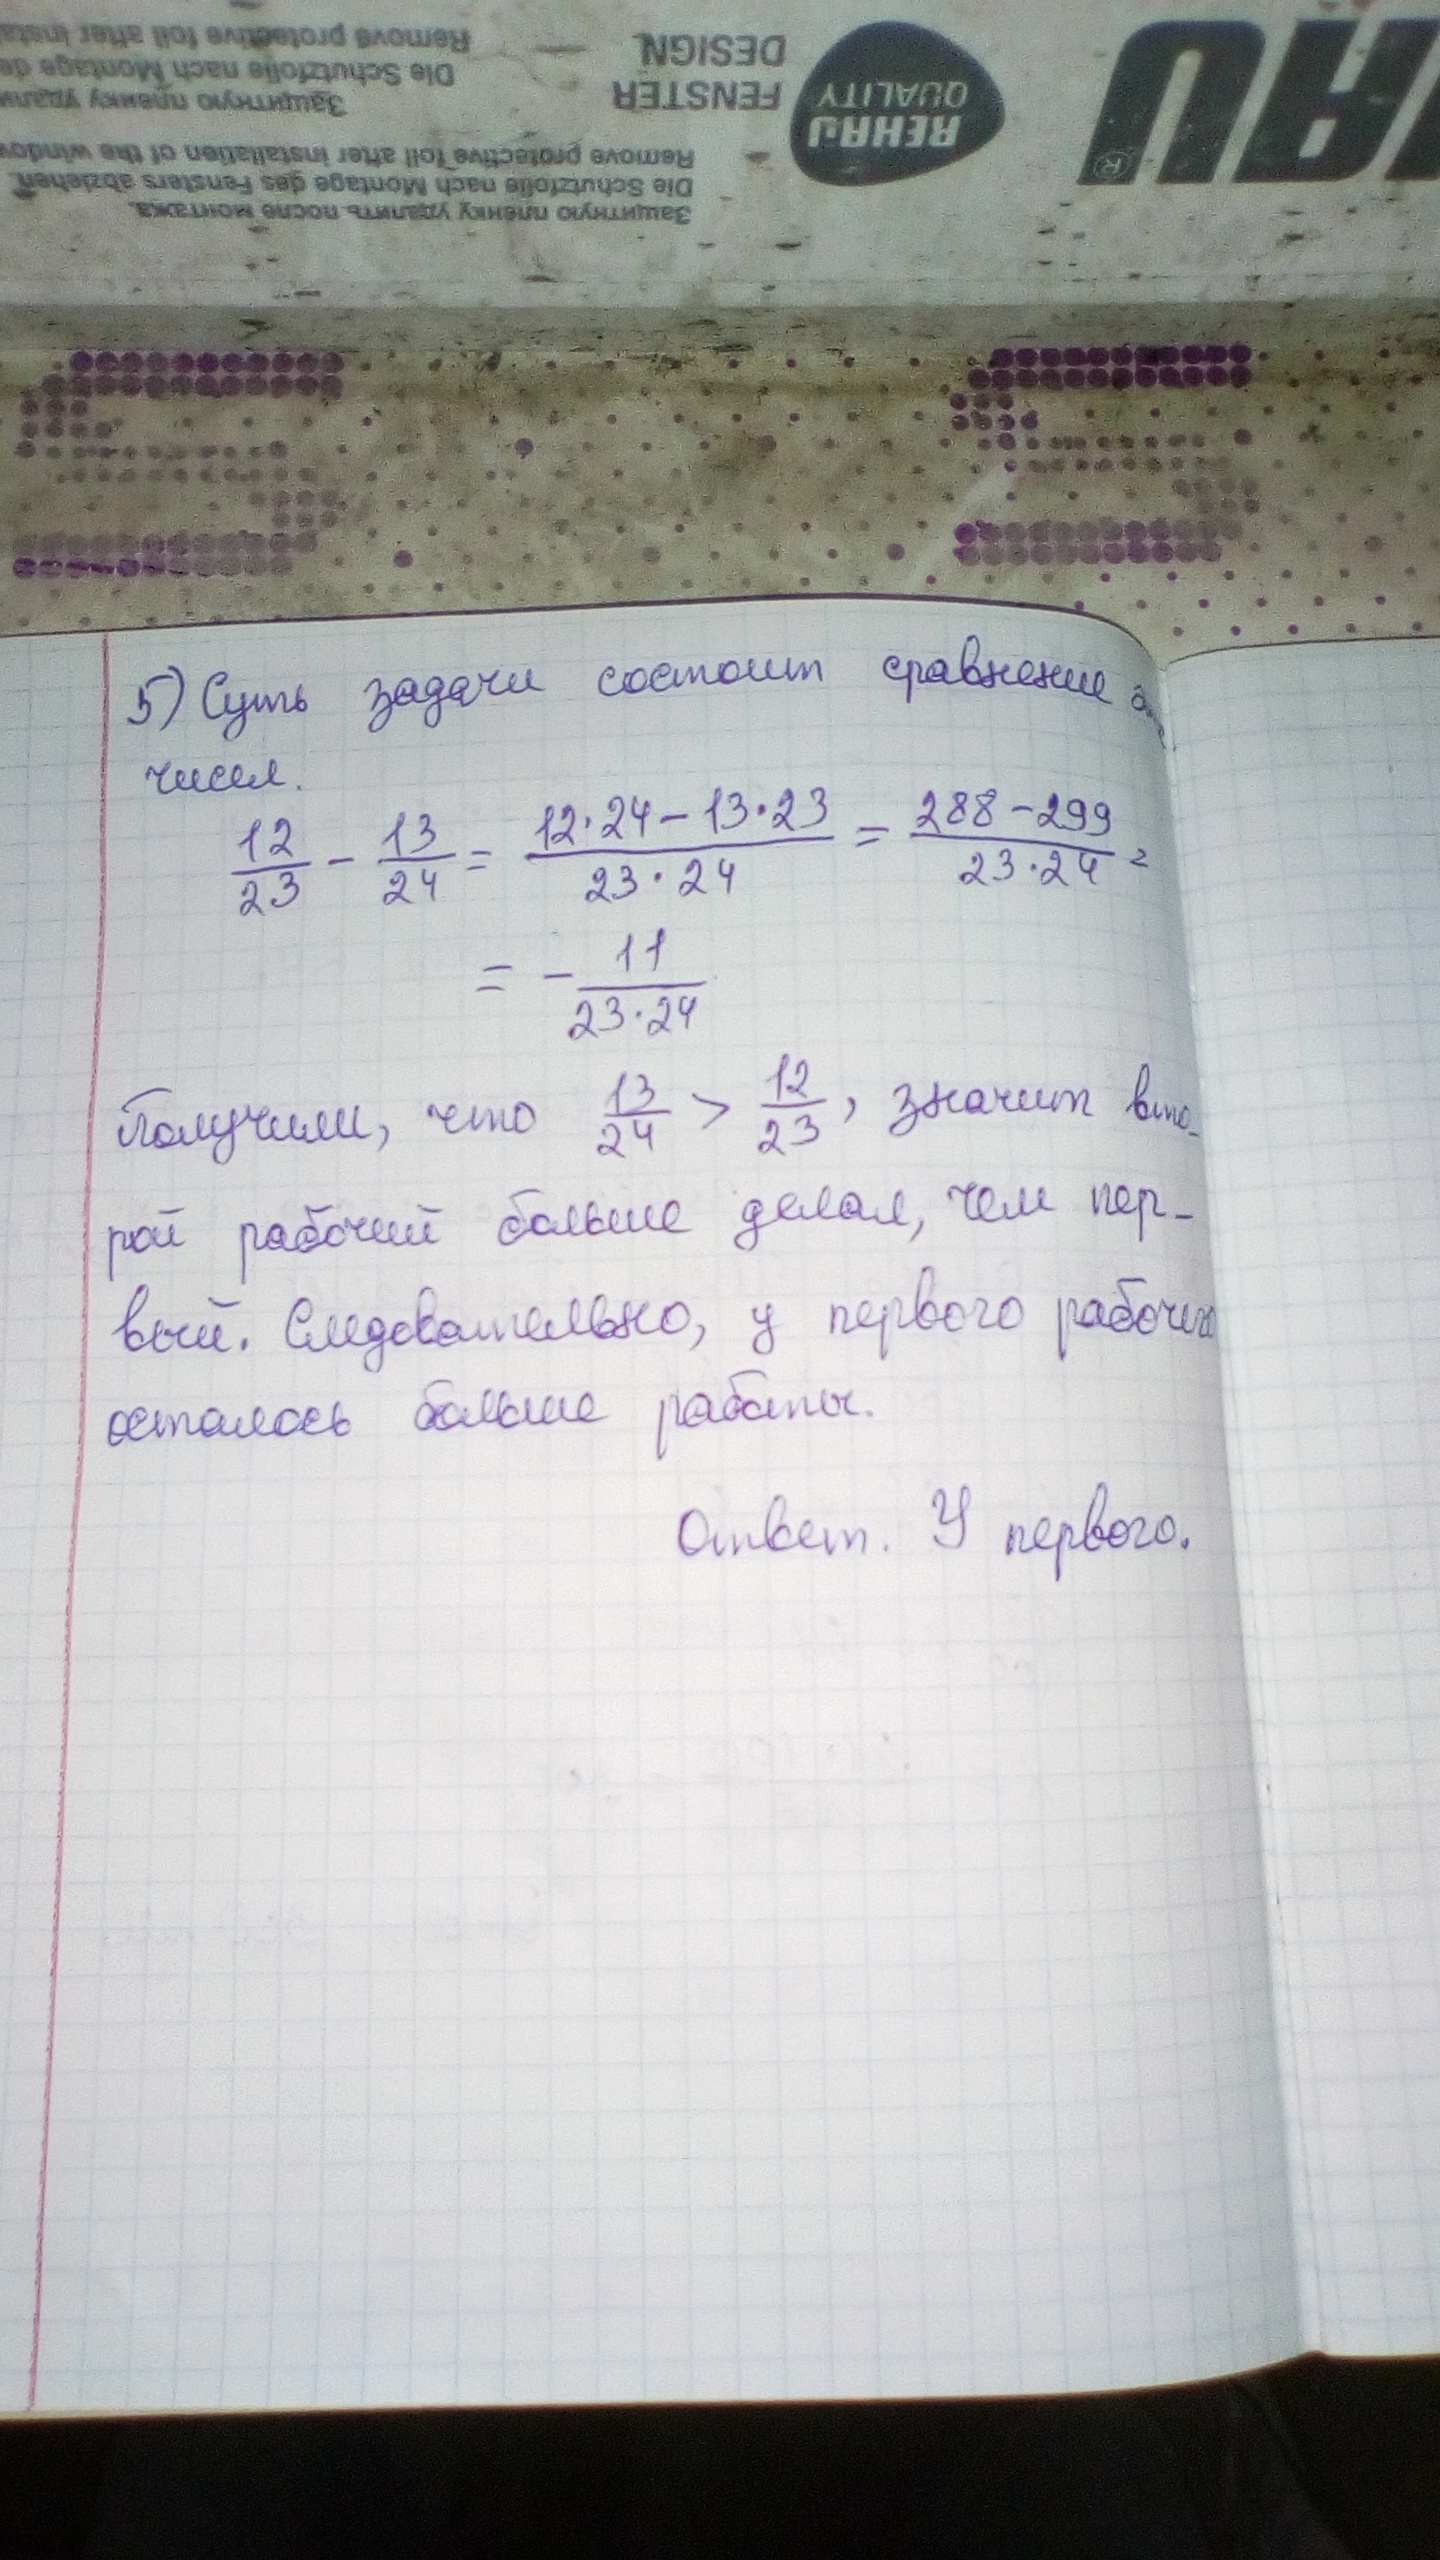 Remove protective foil after instal
Die Schutzfolie nach Montage de
Защитную пленку удали
Remove protective foil after installation of the window
Die Schutzfolie nach Montage des Fensters abziehen.
Защитную пленку удалить после монтажа.
FENSTER
DESIGN
REHAU
QUALITY
AU
®
5) Суть задачи состоит сравнение
чисел.
12/23 - 13/24 = (12·24 - 13·23)/(23·24) = (288 - 299)/(23·24) =
= - 11/(23·24)
Получили, что 13/24 > 12/23, значит вто-
рой рабочий больше делал, чем пер-
вый. Следовательно, у первого рабочего
осталось больше работы.
Ответ. У первого.